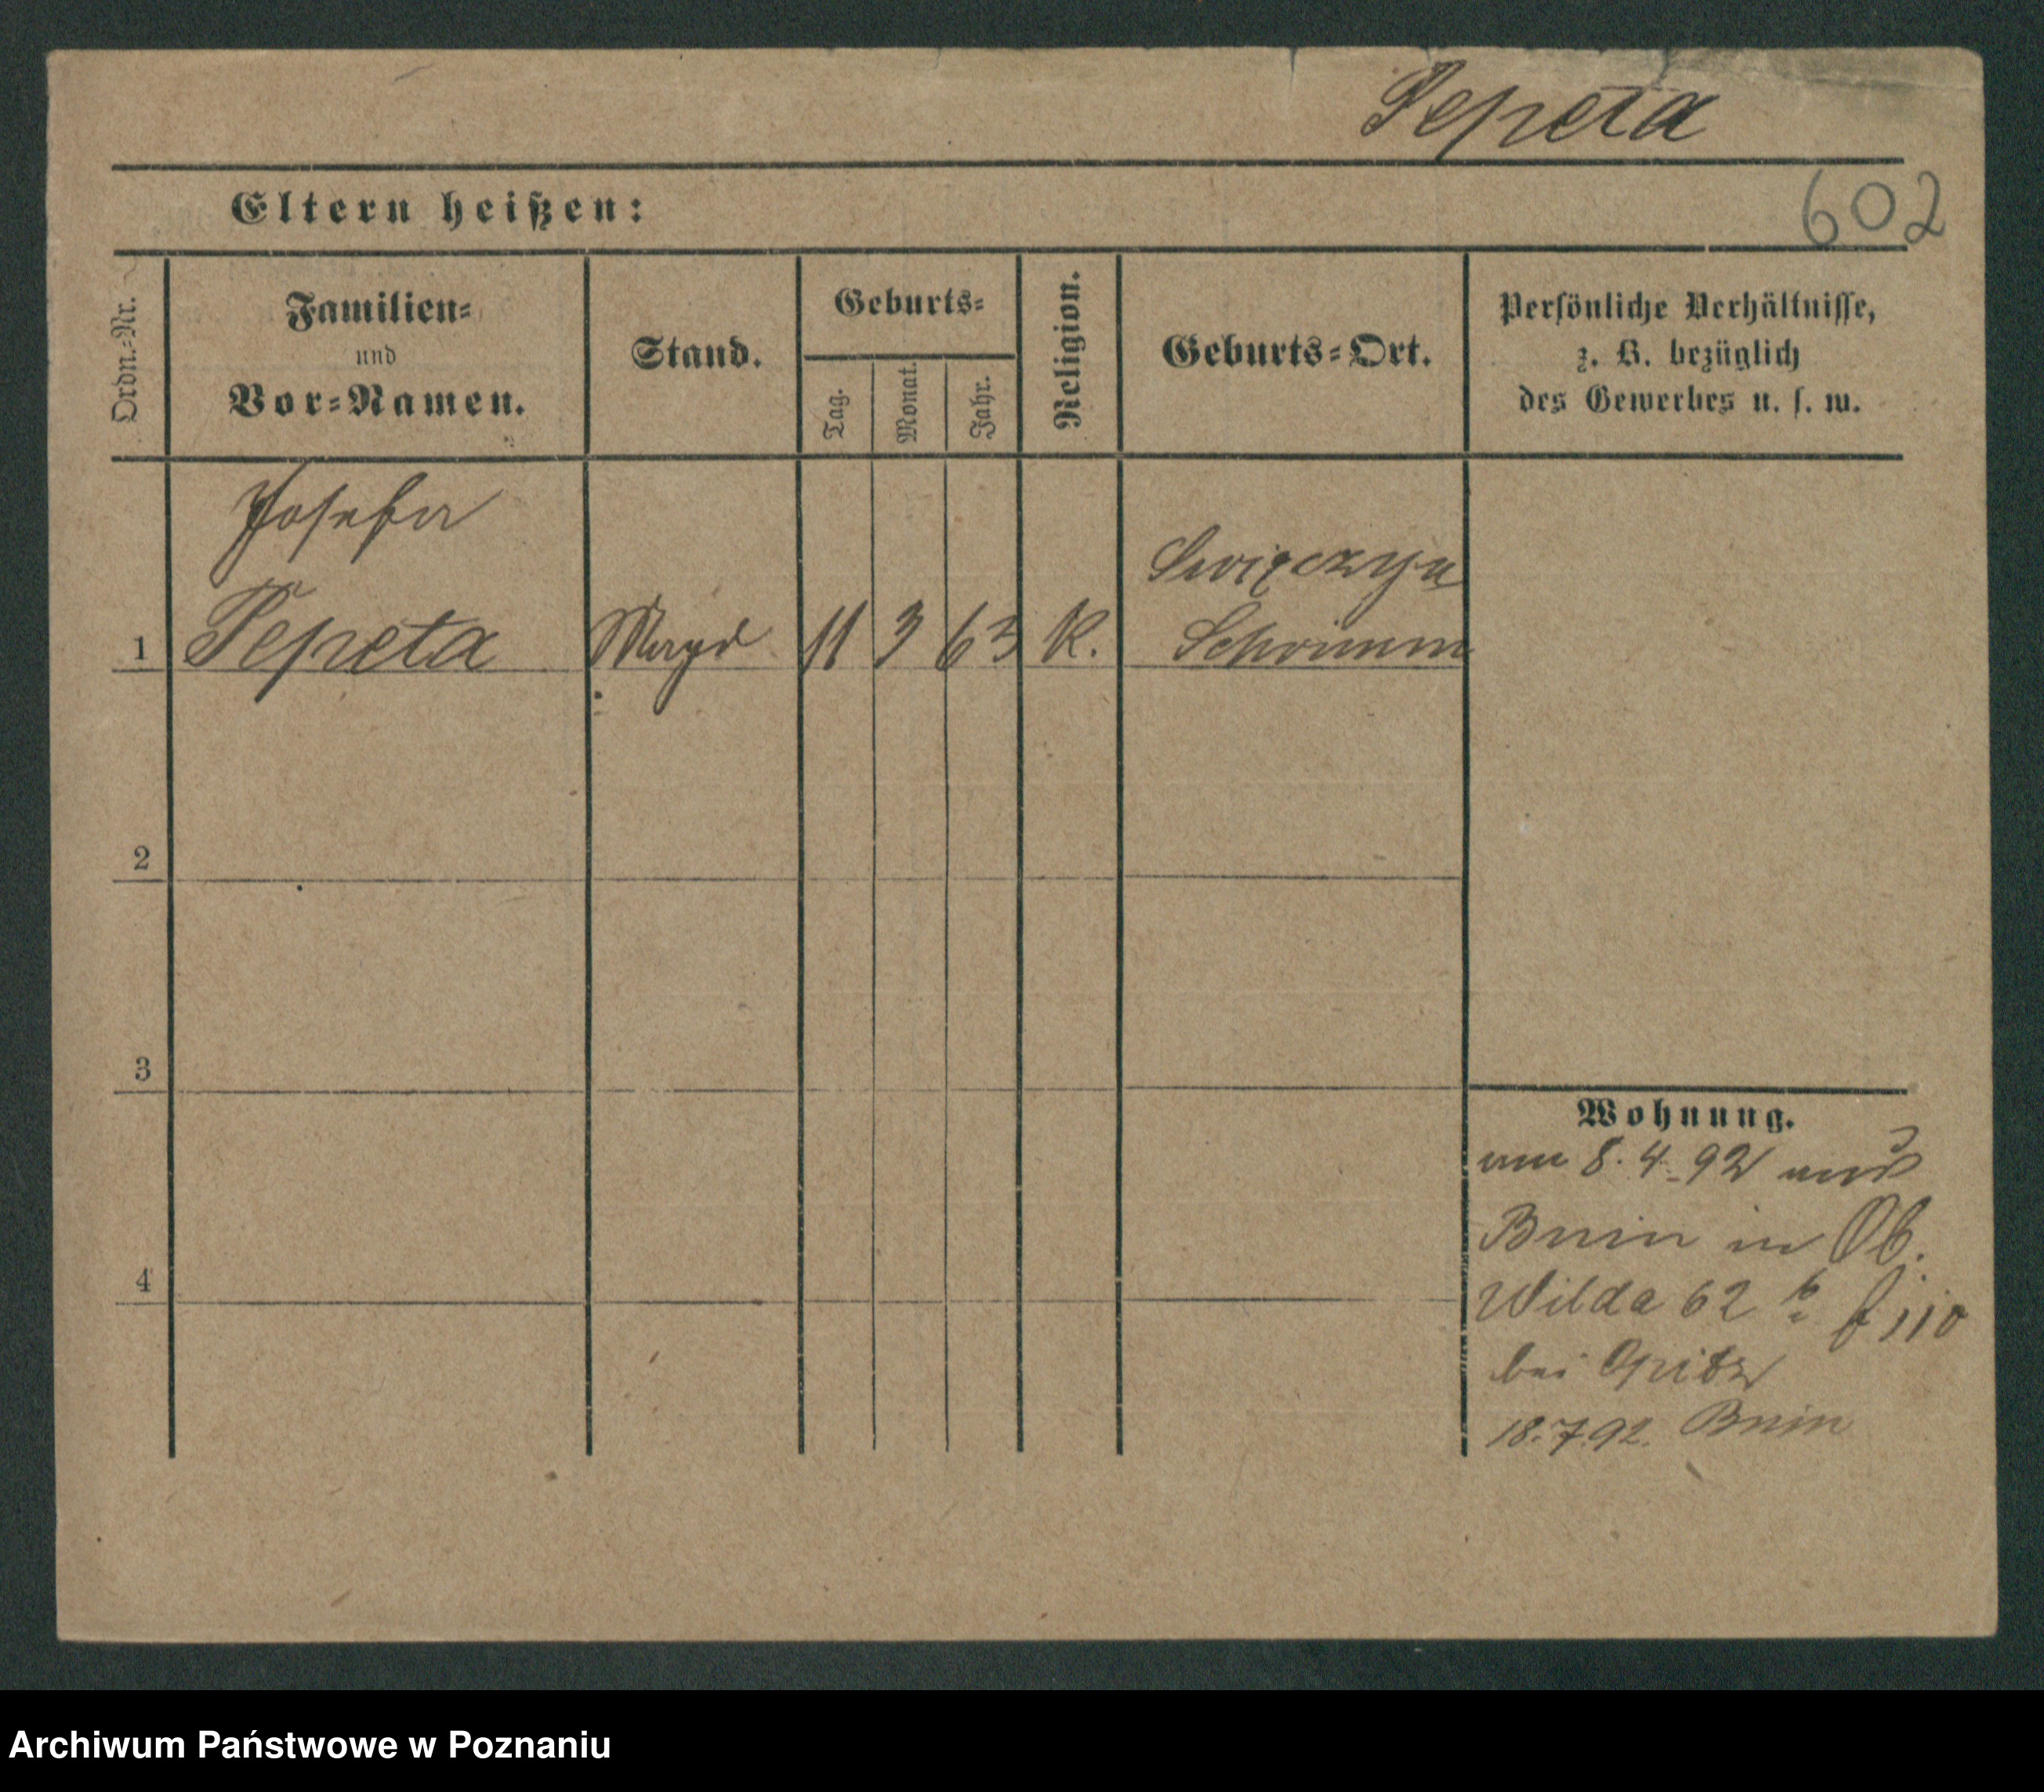 Pepeta
602
Eltern heißen:
Ordn.-Nr.
Familien-
und
Vor-Namen.
Stand.
Geburts-
Tag.
Monat.
Jahr.
Religion.
Geburts-Ort.
Persönliche Verhältnisse,
z. B. bezüglich
des Gewerbes u. s. w.
Josefa
Swięczyn
1 Pepeta Magd 11 3 63 K. Schrimm
2
3
4
Wohnung.
am 8.4.92 aus
Bnin in Ob.
Wilda 62
bei Opitz
18.7.92. Bnin
Archiwum Państwowe w Poznaniu